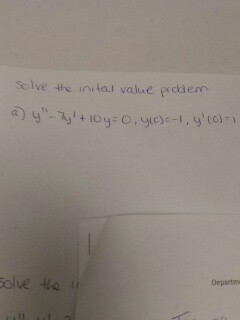 solve the inital value problem
a) y"-7y'+10y=0, y(0)=-1, y'(0)=1
Departm
solve the i